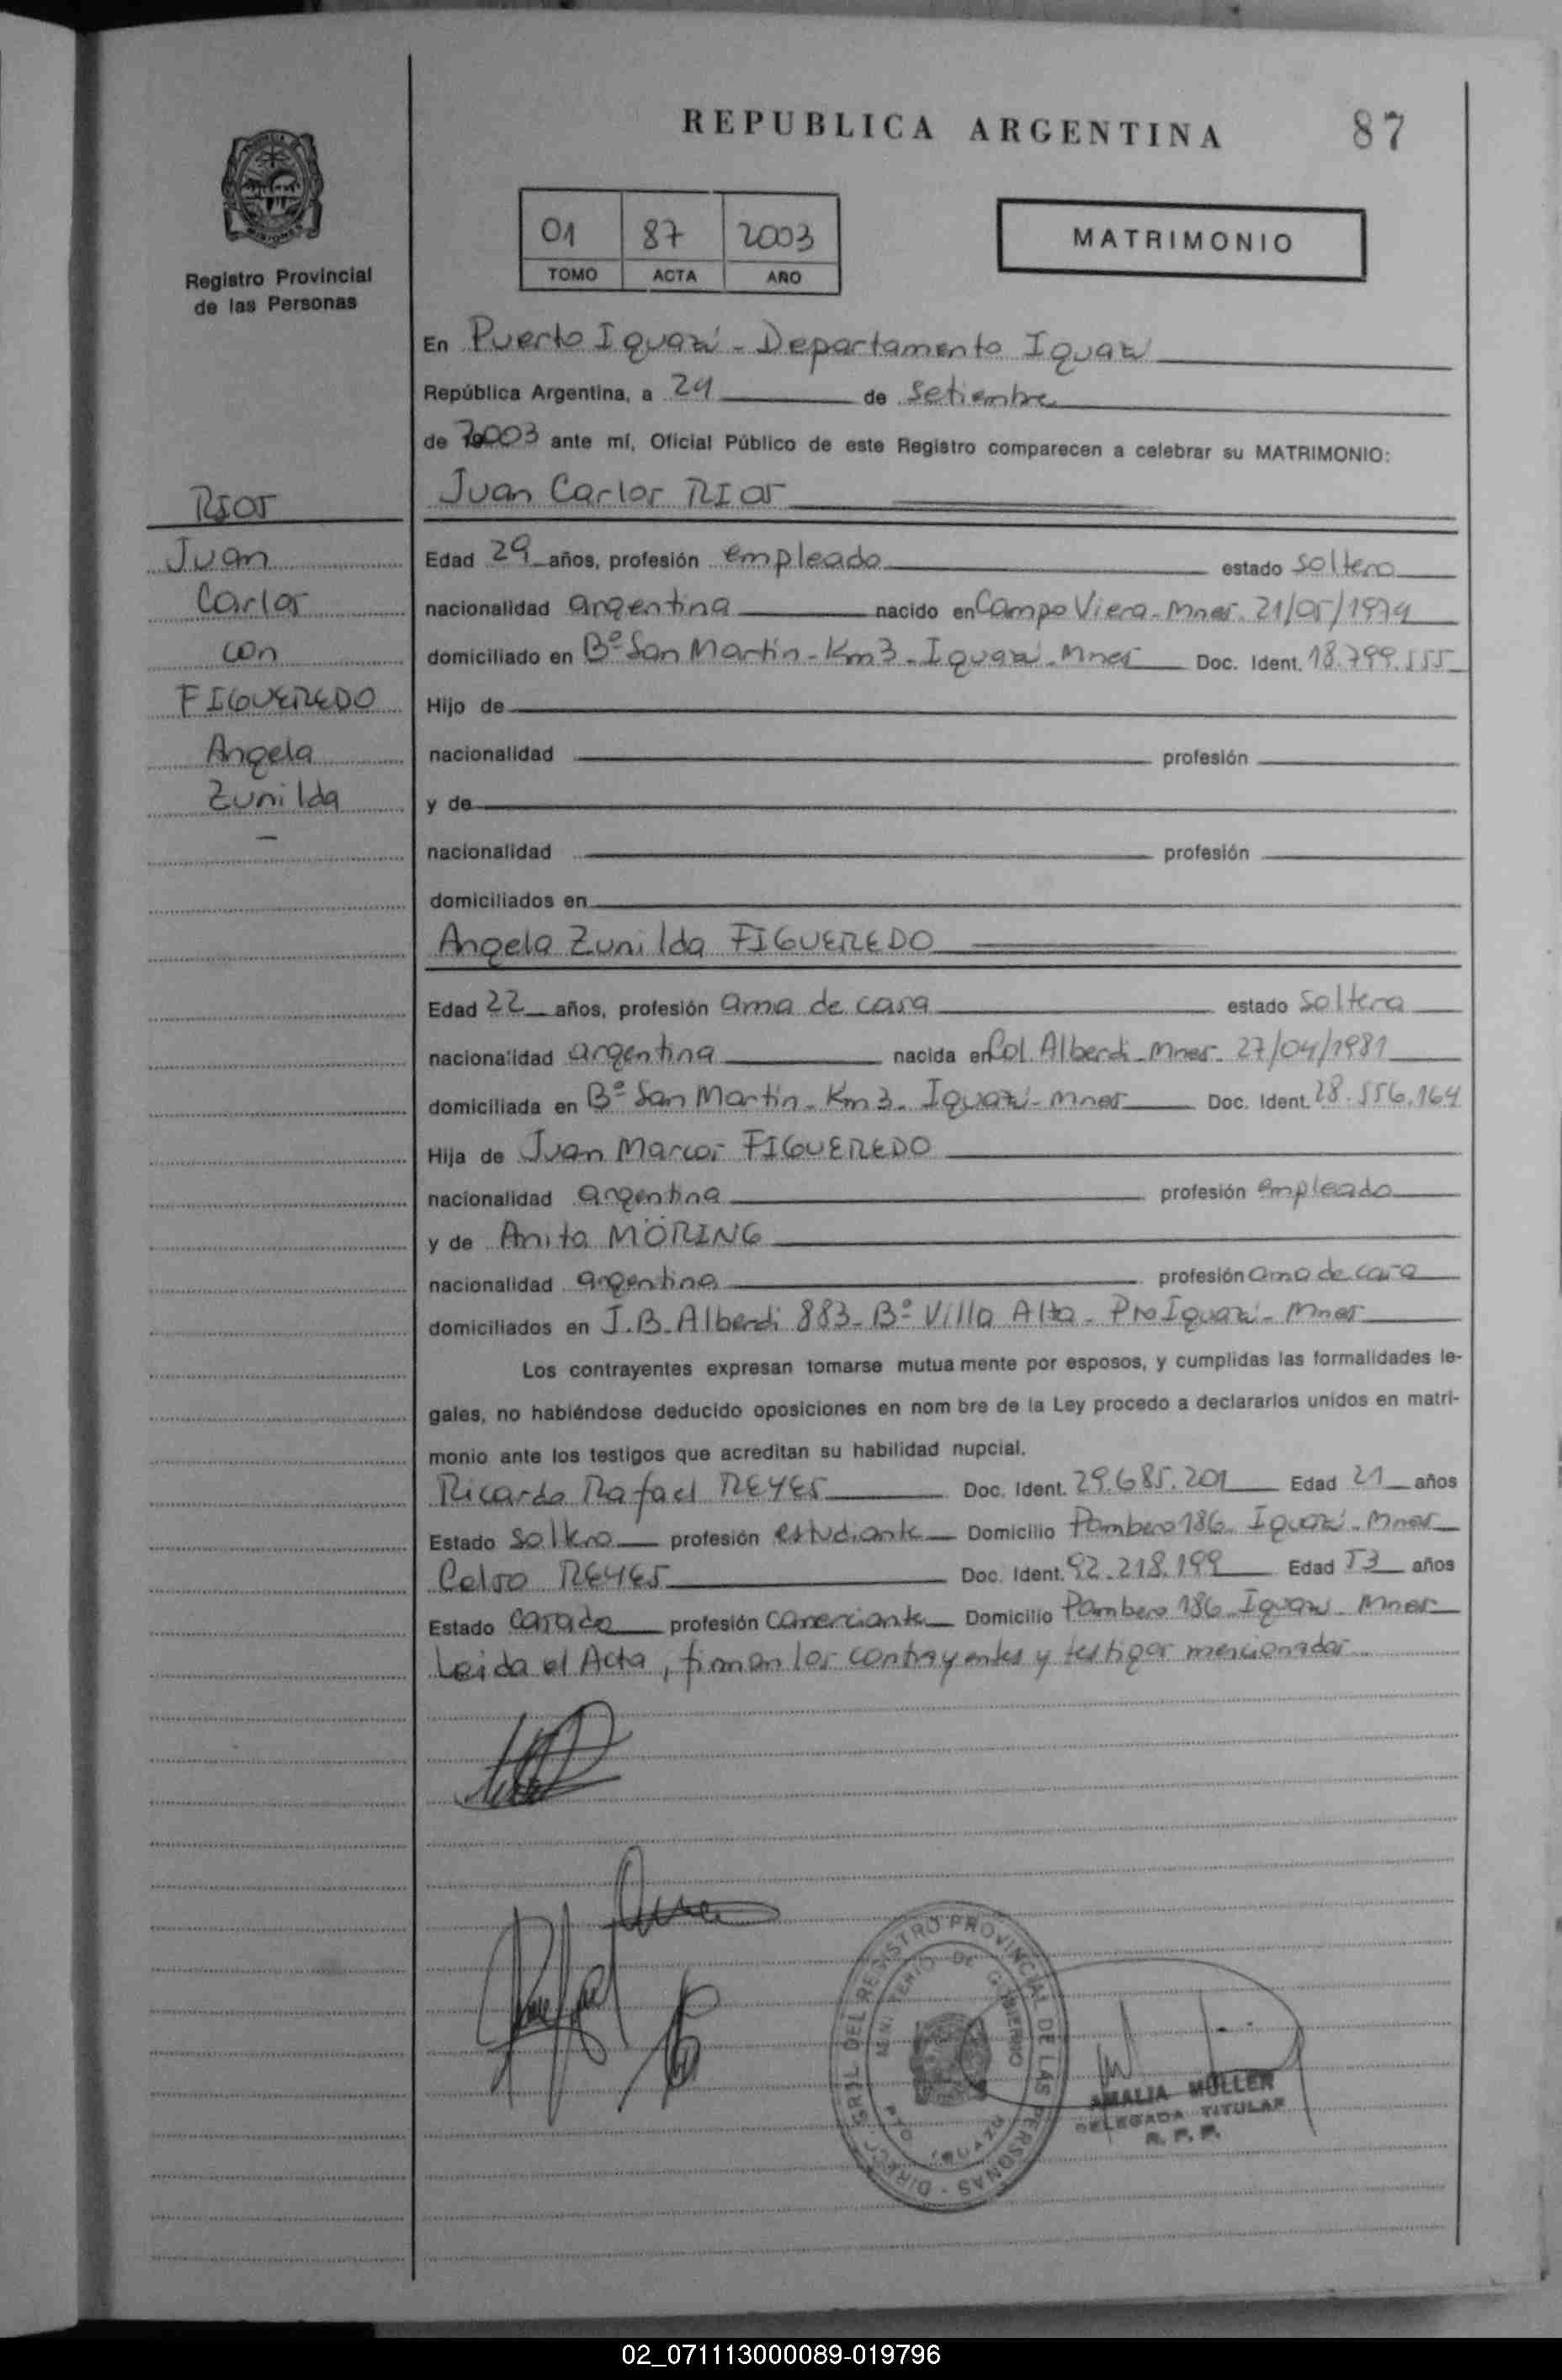 REPUBLICA ARGENTINA
87
01 87 2003
TOMO ACTA AÑO
MATRIMONIO
Registro Provincial
de las Personas
En Puerto Iguazú - Departamento Iguazú
República Argentina, a 24 de Setiembre
de 2003 ante mí, Oficial Público de este Registro comparecen a celebrar su MATRIMONIO:
RIOS
Juan Carlos RIOS
Juan
Edad 29 años, profesión empleado estado soltero
Carlos
nacionalidad argentina nacido en Campo Viera - Mnes. 21/05/1974
con
domiciliado en Bº San Martín - Km 3 - Iguazú - Mnes Doc. Ident. 18.799.555
FIGUEREDO
Hijo de
Angela
nacionalidad profesión
Zunilda
y de
nacionalidad profesión
domiciliados en
Angela Zunilda FIGUEREDO
Edad 22 años, profesión ama de casa estado soltera
nacionalidad argentina nacida en Col. Alberdi - Mnes - 27/04/1981
domiciliada en Bº San Martín - Km 3 - Iguazú - Mnes Doc. Ident. 28.556.164
Hija de Juan Marcos FIGUEREDO
nacionalidad argentina profesión empleado
y de Anita MÖRING
nacionalidad argentina profesión ama de casa
domiciliados en J.B. Alberdi 883 - Bº Villa Alta - Pto Iguazú - Mnes
Los contrayentes expresan tomarse mutua mente por esposos, y cumplidas las formalidades le-
gales, no habiéndose deducido oposiciones en nom bre de la Ley procedo a declararlos unidos en matri-
monio ante los testigos que acreditan su habilidad nupcial.
Ricardo Rafael REYES Doc. Ident. 29.685.201 Edad 21 años
Estado soltero profesión estudiante Domicilio Pombero 186 - Iguazú - Mnes
Celso REYES Doc. Ident. 92.218.199 Edad 53 años
Estado casado profesión comerciante Domicilio Pombero 186 - Iguazú - Mnes
Leida el Acta, firman los contrayentes y testigos mencionados
DIRECC. GRAL DEL REGISTRO PROVINCIAL DE LAS PERSONAS
MINISTERIO DE GOBIERNO
PTO IGUAZU
AMALIA MÜLLER
DELEGADA TITULAR
R. P. P.
02_071113000089-019796